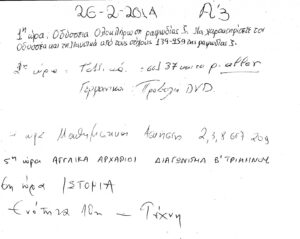 26-2-2014 Α'3
1η ώρα: Οδύσσεια Ολοκλήρωση ραψωδίας ζ. Να χαρακτηρίσετε τον
Οδυσσέα και τη Ναυσικά από τους στίχους 139-259 της ραψωδίας ζ.
2η ώρα: Γαλλικά: σελ 37 και το ρ. aller
Γερμανικά: Προβολή DVD
ώρα Μαθηματικά Ασκήσεις 2,3,8 σελ 209
5η ώρα ΑΓΓΛΙΚΑ ΑΡΧΑΡΙΟΙ ΔΙΑΓΩΝΙΣΜΑ Β' ΤΡΙΜΗΝΟΥ
6η ώρα ΙΣΤΟΡΙΑ
Ενότητα 18η – Τέχνη